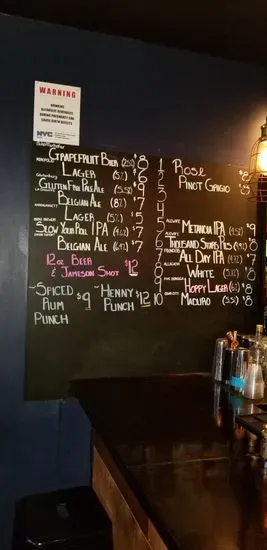 WARNING
DRINKING
ALCOHOLIC BEVERAGES
DURING PREGNANCY CAN
CAUSE BIRTH DEFECTS
NYC
GRAPEFRUIT BIER (2.5%) $8
LAGER (5%) $6
GLUTEN FREE PALE ALE (5.5%) $9
BELGIAN ALE (8%) $7
LAGER (5%) $5
SLOW YOUR ROLL IPA $7
BELGIAN ALE $7
12oz BEER
& JAMESON SHOT $12
~SPICED
RUM
PUNCH $9
~HENNY
PUNCH $12
1 ROSE $8
2 PINOT GRIGIO $8
3
4
5 METANOIA IPA $9
6 THOUSAND STARS PILS $8
7 FOUNDERS ALL DAY IPA $7
8 ALLAGASH WHITE $8
9 HOPPY LAGER $8
10 MADURO (5.5%) $8